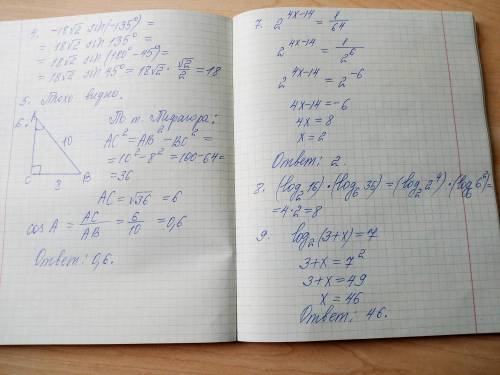 4. -18√2 sin(-135°) =
= 18√2 sin 135° =
= 18√2 sin (180° - 45°) =
= 18√2 sin 45° = 18√2 · √2/2 = 18
5. Плохо видно.
6. A
10
C 8 B
По т. Пифагора:
AC² = AB² - BC² =
= 10² - 8² = 100 - 64 =
= 36
AC = √36 = 6
cos A = AC/AB = 6/10 = 0,6
Ответ: 0,6.
7. 2^(4x-14) = 1/64
2^(4x-14) = 1/2⁶
2^(4x-14) = 2⁻⁶
4x - 14 = -6
4x = 8
x = 2
Ответ: 2.
8. (log₂ 16) · (log₆ 36) = (log₂ 2⁴) · (log₆ 6²) =
= 4 · 2 = 8
9. log₂ (3+x) = 7
3 + x = 7²
3 + x = 49
x = 46
Ответ: 46.